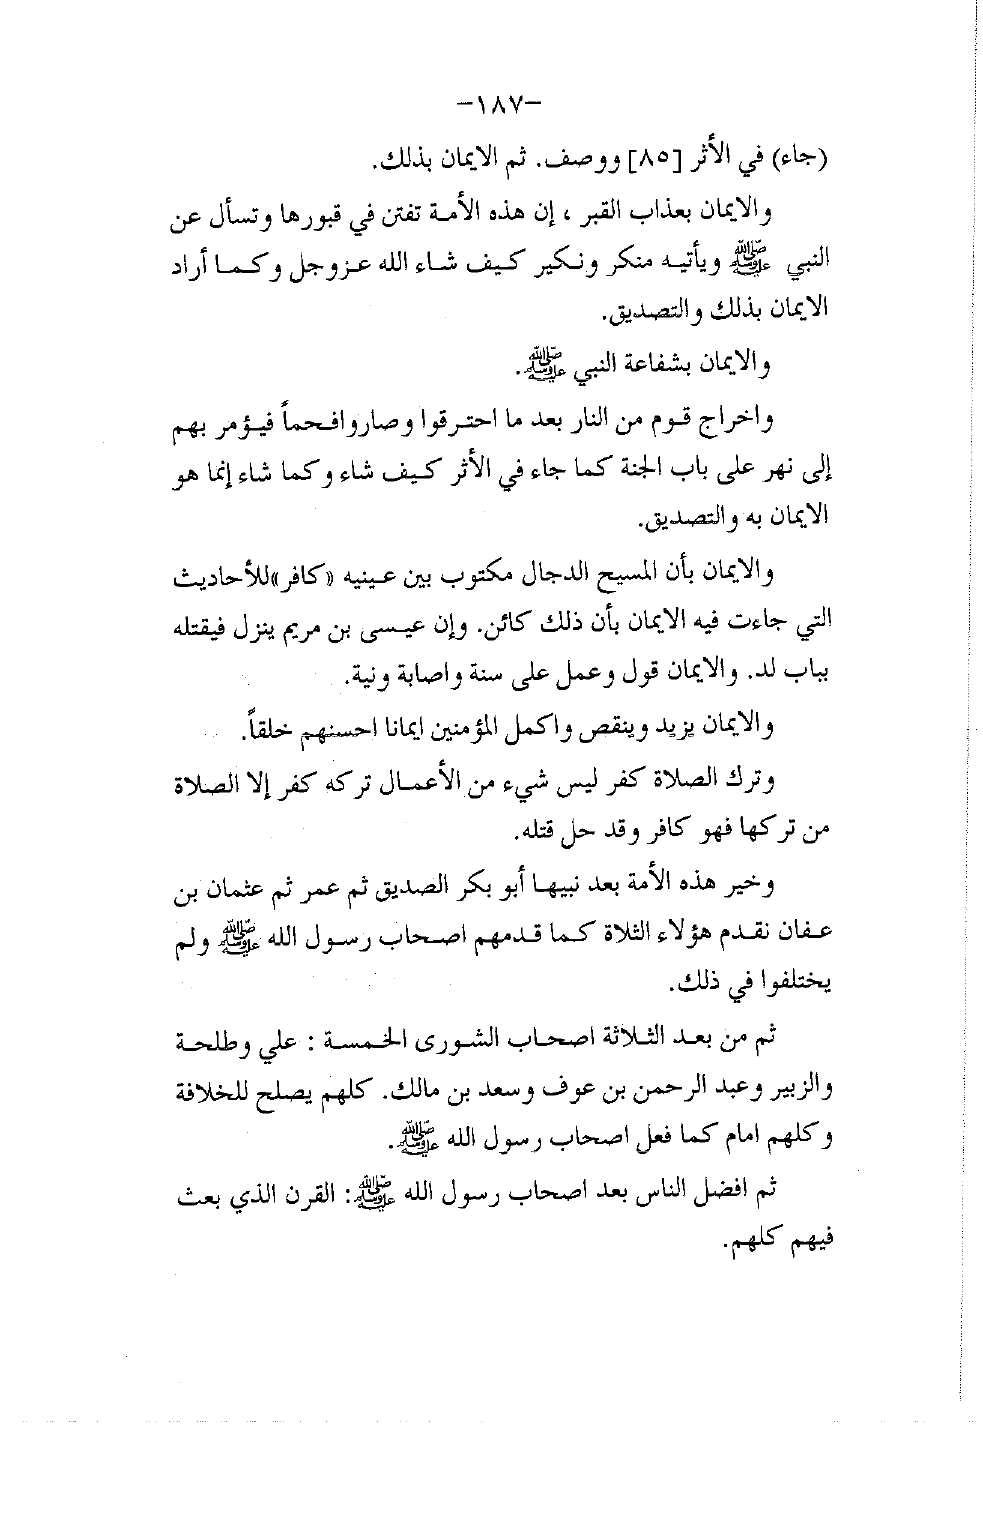 -١٨٧-
(جاء) في الأثر [٨٥] ووصف. ثم الايمان بذلك.
والايمان بعذاب القبر ، إن هذه الأمة تفتن في قبورها وتسأل عن
النبي ﷺ ويأتيه منكر ونكير كيف شاء الله عزوجل وكما أراد
الايمان بذلك والتصديق.
والايمان بشفاعة النبي ﷺ.
واخراج قوم من النار بعد ما احترقوا وصاروافحماً فيؤمر بهم
إلى نهر على باب الجنة كما جاء في الأثر كيف شاء وكما شاء إنما هو
الايمان به والتصديق.
والايمان بأن المسيح الدجال مكتوب بين عينيه «كافر»للأحاديث
التي جاءت فيه الايمان بأن ذلك كائن. وإن عيسى بن مريم ينزل فيقتله
بباب لد. والايمان قول وعمل على سنة واصابة ونية.
والايمان يزيد وينقص واكمل المؤمنين ايمانا احسنهم خلقاً.
وترك الصلاة كفر ليس شيء من الأعمال تركه كفر إلا الصلاة
من تركها فهو كافر وقد حل قتله.
وخير هذه الأمة بعد نبيها أبو بكر الصديق ثم عمر ثم عثمان بن
عفان نقدم هؤلاء الثلاة كما قدمهم اصحاب رسول الله ﷺ ولم
يختلفوا في ذلك.
ثم من بعد الثلاثة اصحاب الشورى الخمسة : علي وطلحة
والزبير وعبد الرحمن بن عوف وسعد بن مالك. كلهم يصلح للخلافة
وكلهم امام كما فعل اصحاب رسول الله ﷺ.
ثم افضل الناس بعد اصحاب رسول الله ﷺ: القرن الذي بعث
فيهم كلهم.